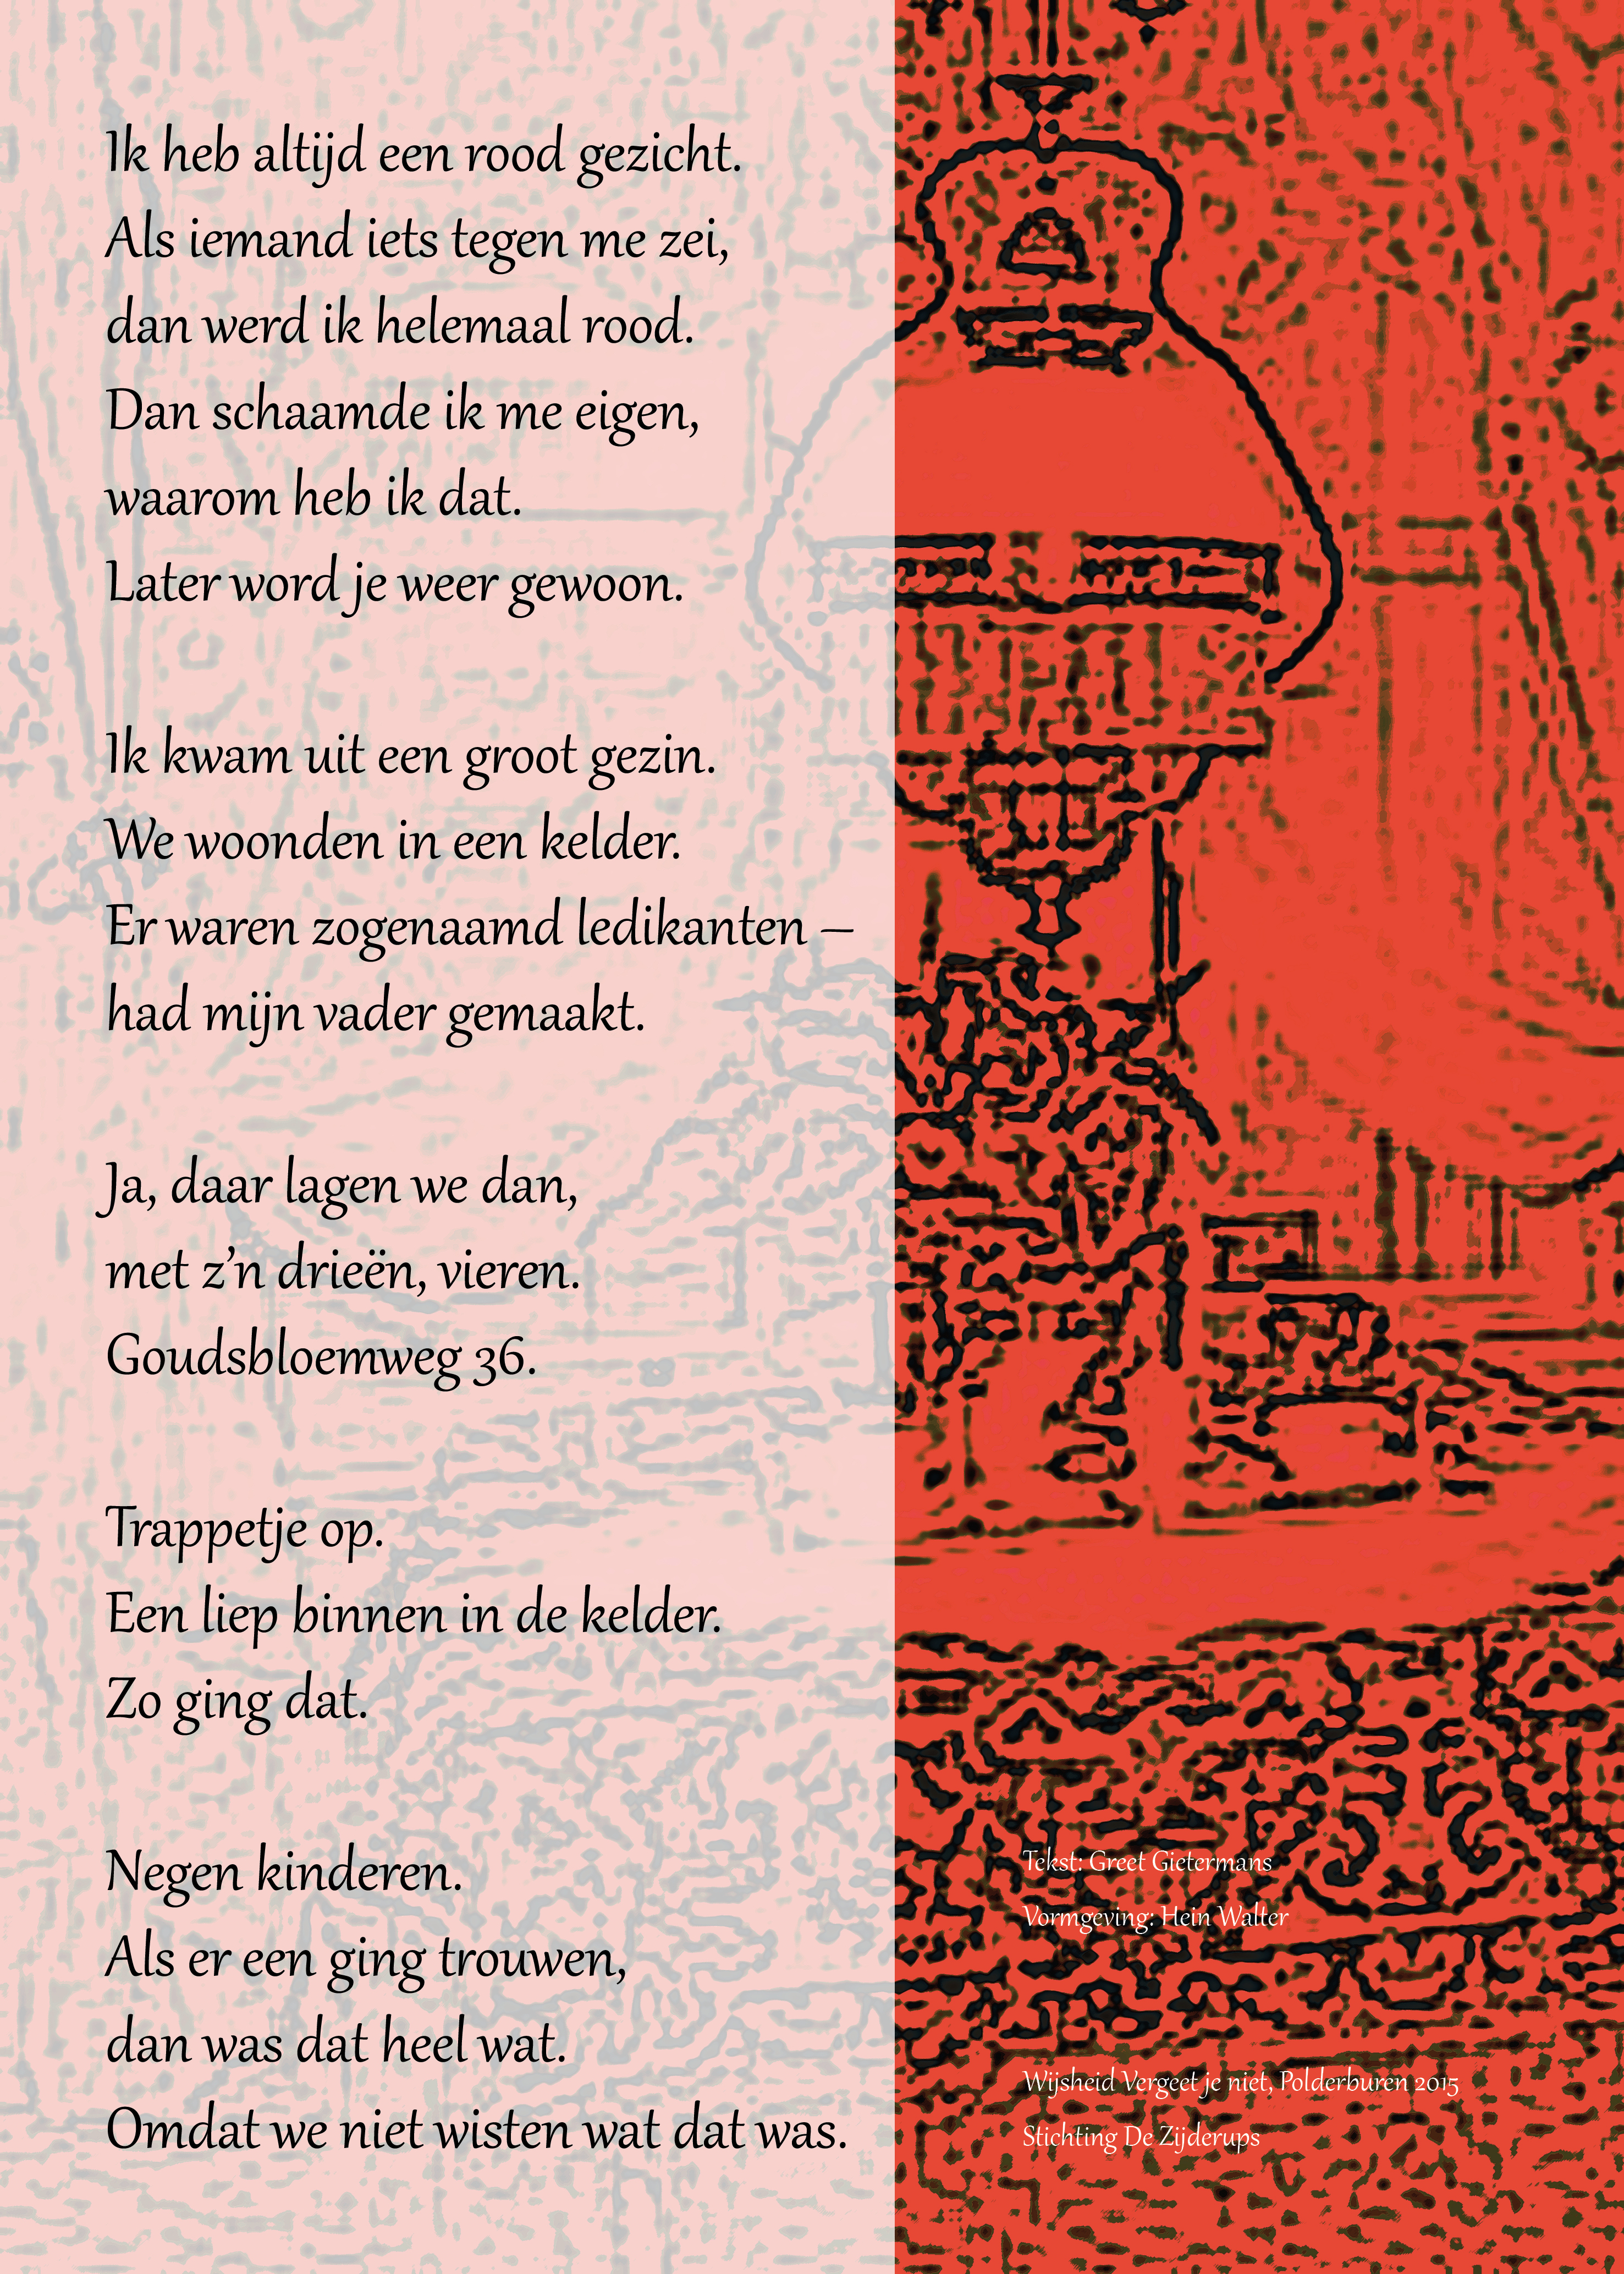 Ik heb altijd een rood gezicht.
Als iemand iets tegen me zei,
dan werd ik helemaal rood.
Dan schaamde ik me eigen,
waarom heb ik dat.
Later word je weer gewoon.
Ik kwam uit een groot gezin.
We woonden in een kelder.
Er waren zogenaamd ledikanten –
had mijn vader gemaakt.
Ja, daar lagen we dan,
met z’n drieën, vieren.
Goudsbloemweg 36.
Trappetje op.
Een liep binnen in de kelder.
Zo ging dat.
Negen kinderen.
Als er een ging trouwen,
dan was dat heel wat.
Omdat we niet wisten wat dat was.
Tekst: Greet Gietermans
Vormgeving: Hein Walter
Wijsheid Vergeet je niet, Polderburen 2015
Stichting De Zijderups